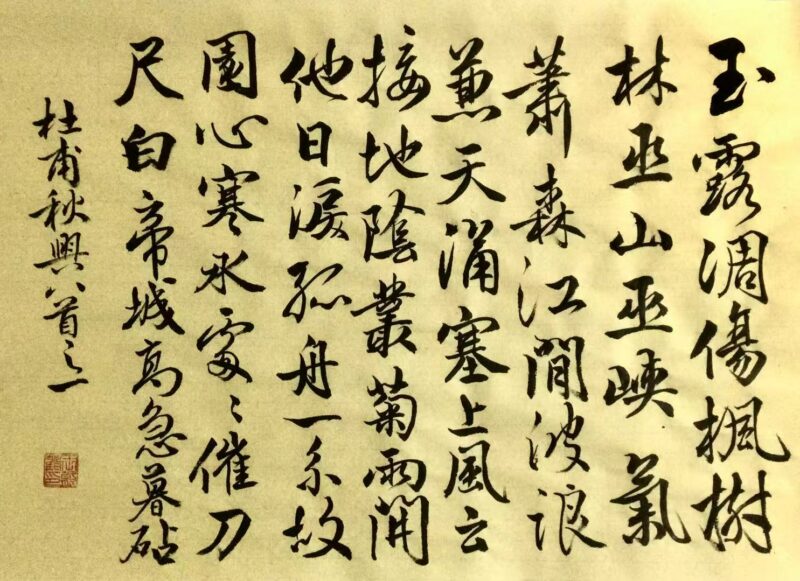 玉露凋傷楓樹
林巫山巫峽氣
蕭森江間波浪
兼天涌塞上風云
接地陰叢菊兩開
他日淚孤舟一系故
園心寒衣處々催刀
尺白帝城高急暮砧
杜甫秋興八首之一